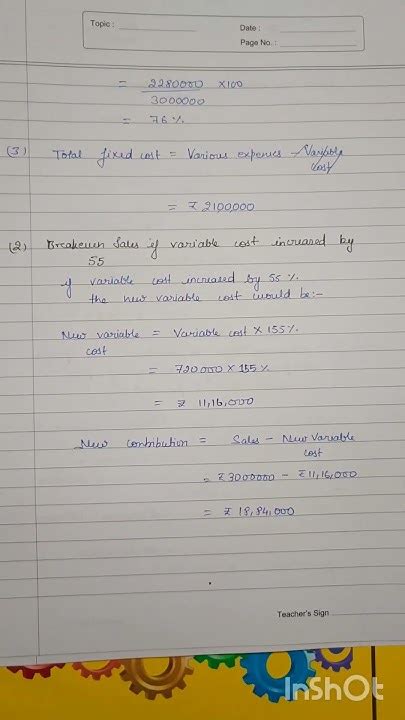 Topic :
Date :
Page No. :
= 2280000 ×100
3000000
= 76 %
(3) Total fixed cost = Various expenses - Variable
cost
= ₹ 2100,000
(2) Breakeven Sales if variable cost increased by
55
if variable cost increased by 55 %.
the new variable cost would be:-
New variable = Variable cost × 155 %
cost
= 720000 × 155 %
= ₹ 11,16,000
New contribution = Sales - New Variable
cost
= ₹3000000 - ₹11,16,000
= ₹ 18,84,000
Teacher's Sign
InShOt